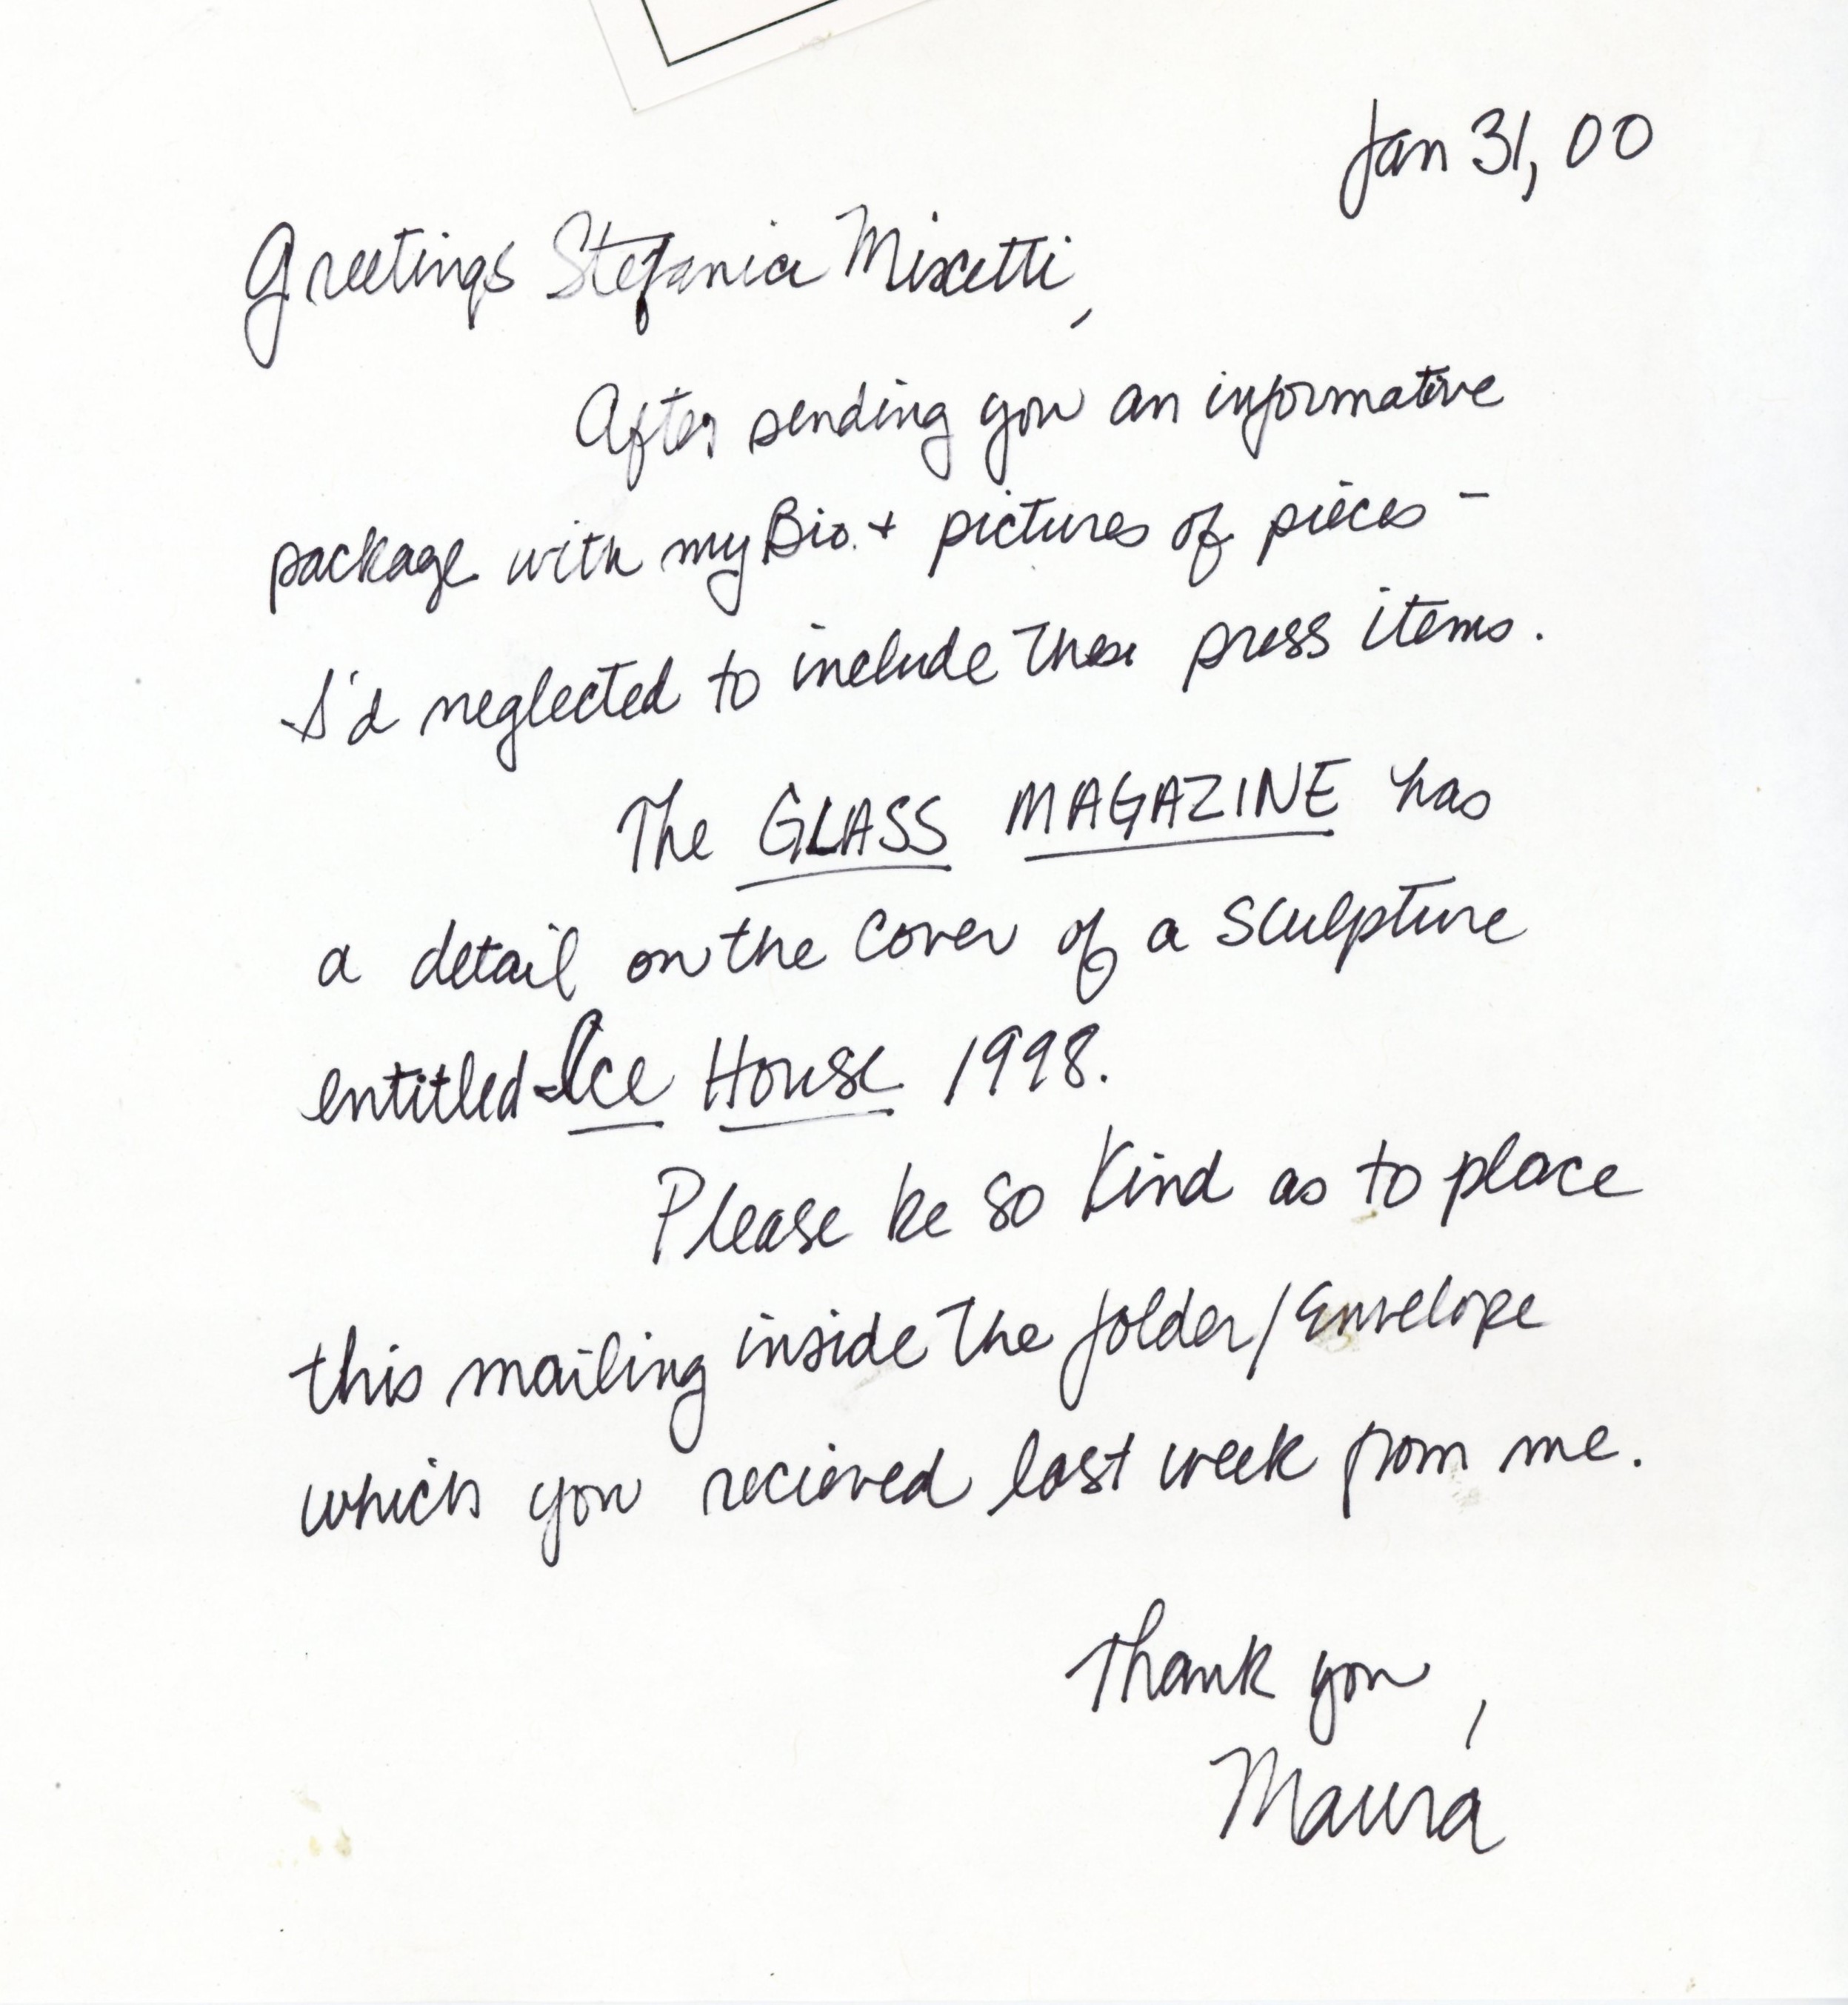 Jan 31, 00
Greetings Stefania Miscetti,
After sending you an informative
package with my Bio. + pictures of pieces –
I'd neglected to include these press items.
The GLASS MAGAZINE has
a detail on the cover of a sculpture
entitled - Ice House 1998.
Please be so kind as to place
this mailing inside the folder/Envelope
which you recieved last week from me.
Thank you,
Maura